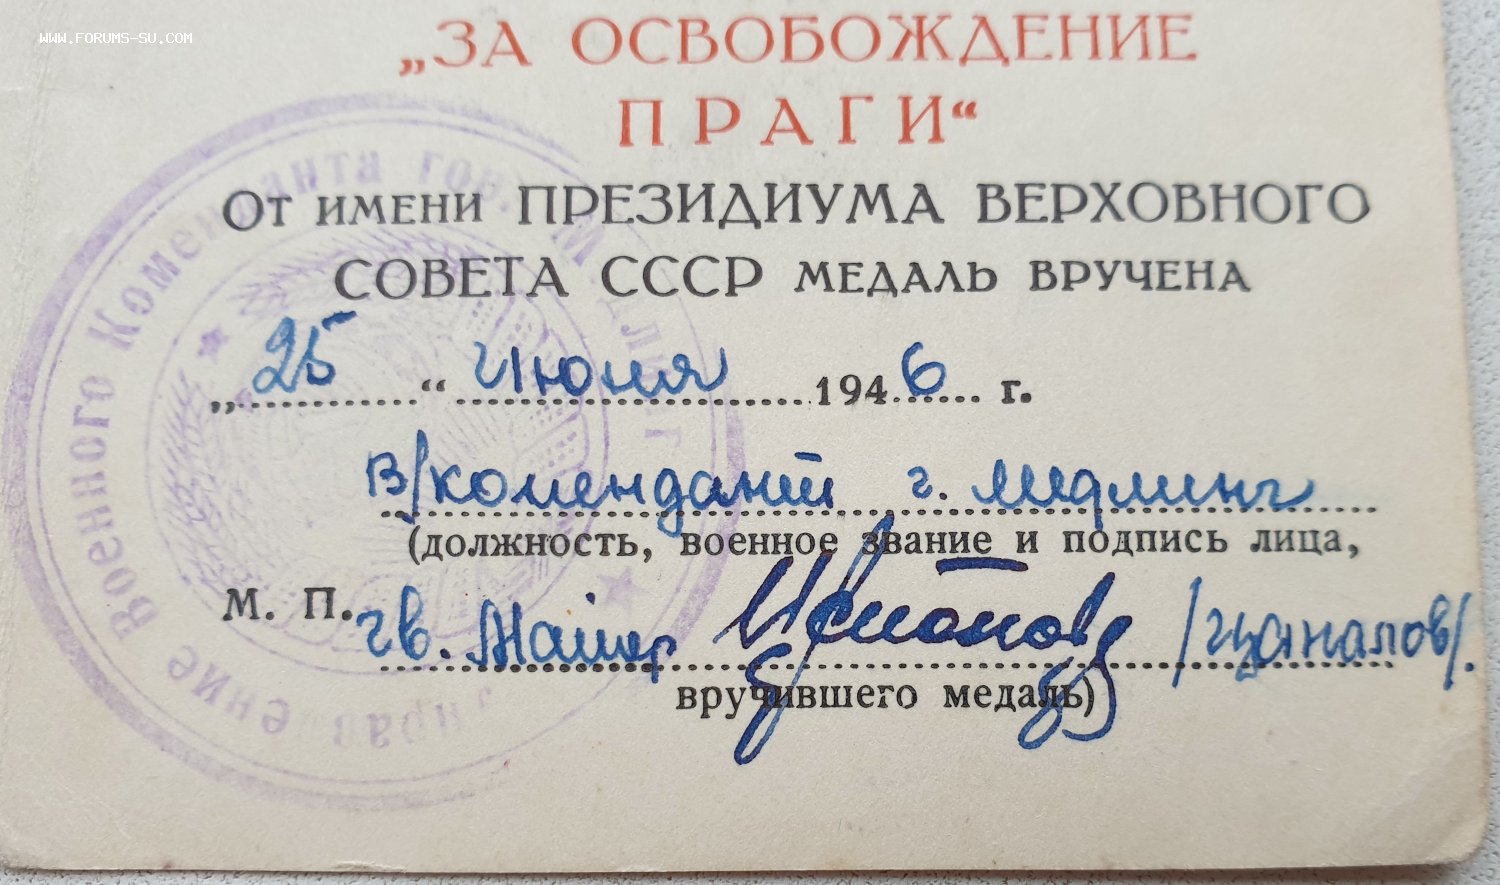 WWW.FORUMS-SU.COM
„ЗА ОСВОБОЖДЕНИЕ
ПРАГИ“
От имени ПРЕЗИДИУМА ВЕРХОВНОГО
СОВЕТА СССР медаль вручена
„25“ июня 1946 г.
в/комендант г. Медлинг
(должность, военное звание и подпись лица,
М. П. гв. Майор /Цаналов/.
вручившего медаль)
Управление Военного Коменданта гор. Медлинг